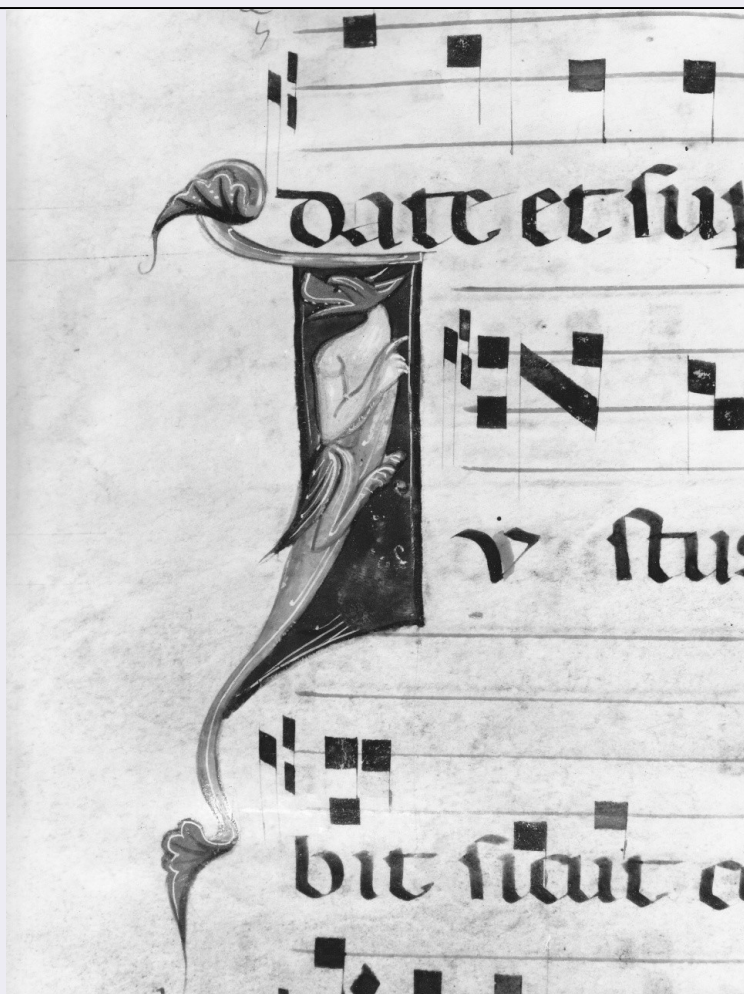 date et sup
I vstus
bit sicut c